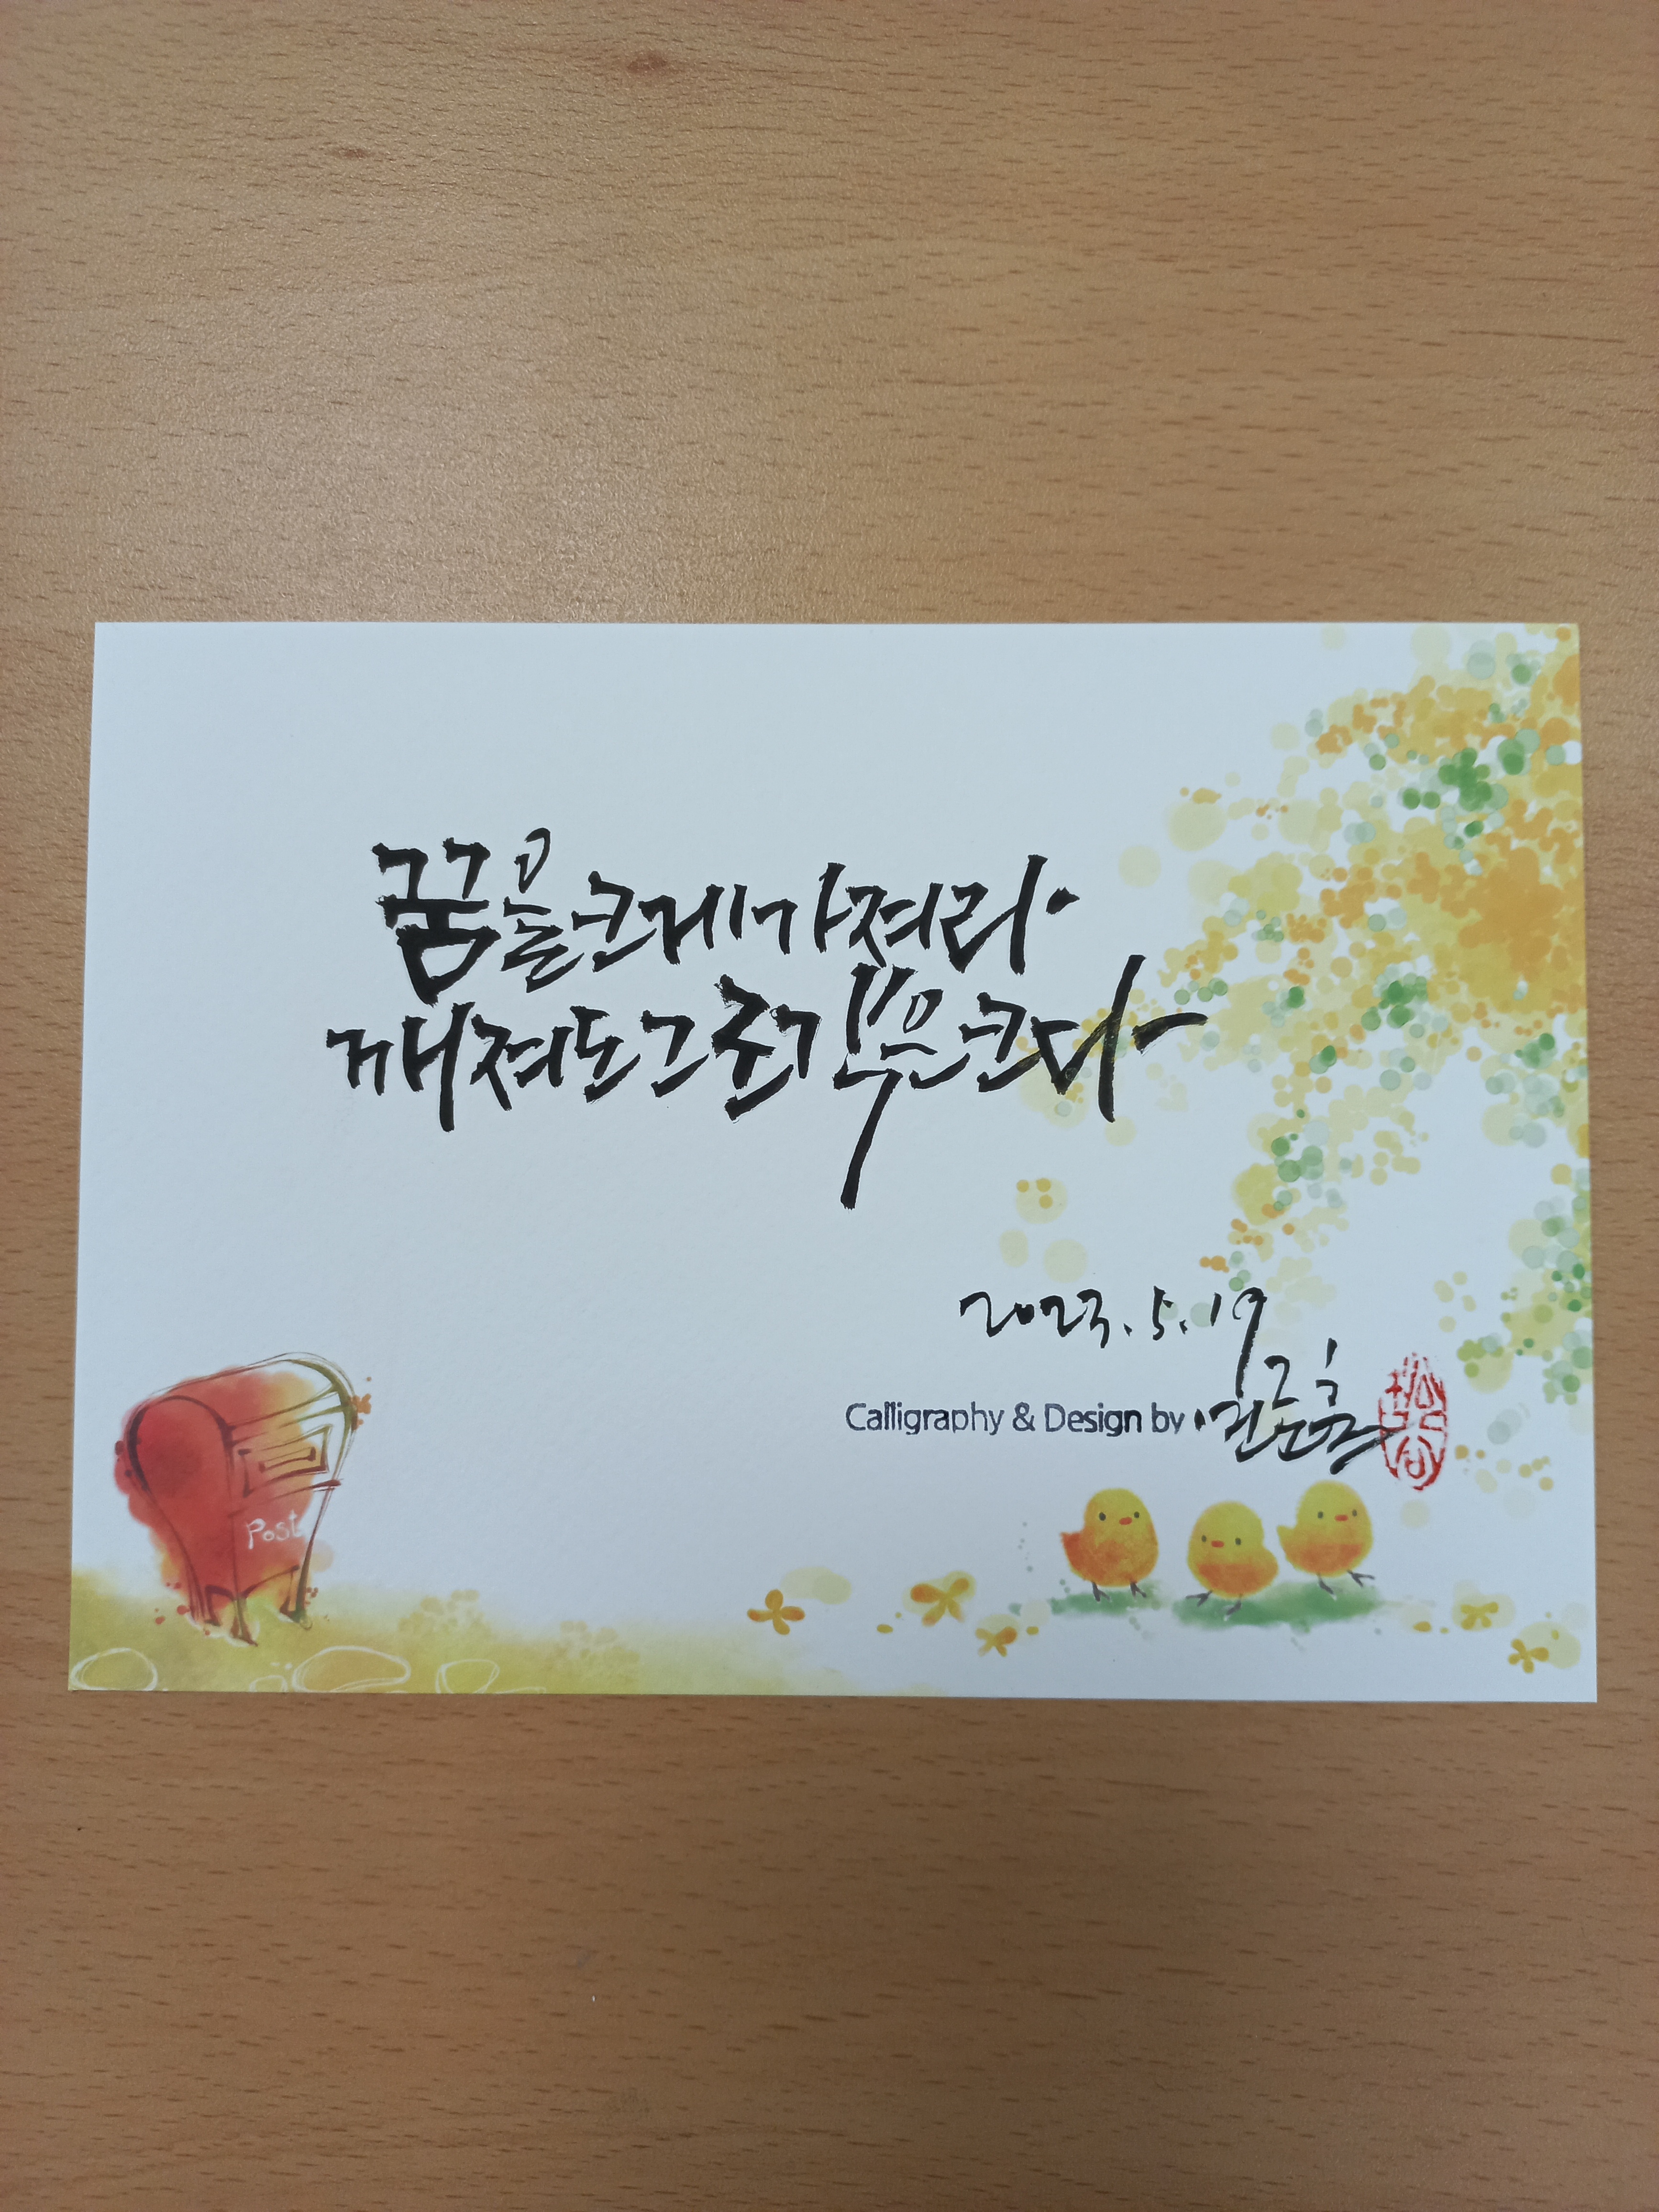 꿈을크게가져라.
깨져도그조각은크다
2023.5.19
Calligraphy & Design by
Post